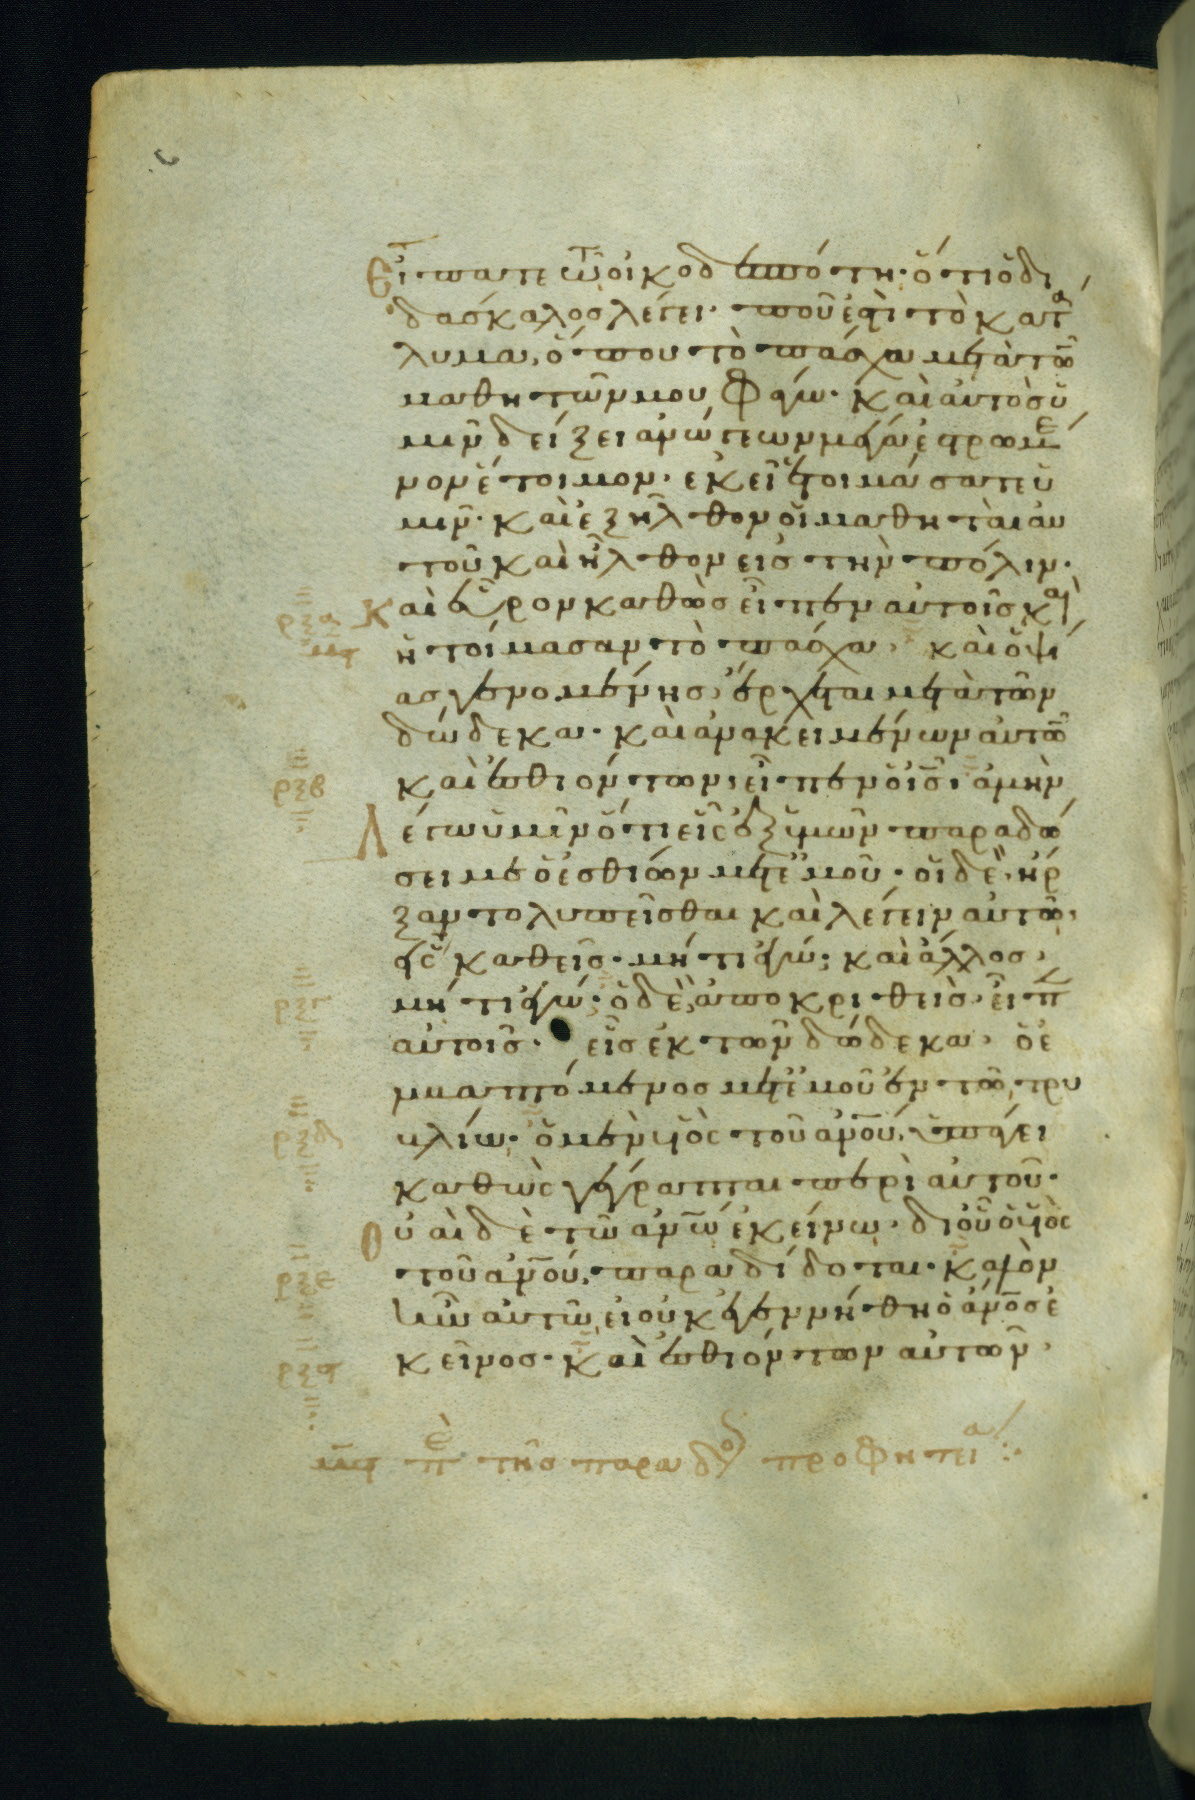 Εἴπατε τῶ οἰκοδεσπότη· ὅτι ὁ δι
δάσκαλος λέγει· ποῦ ἐστὶ τὸ κατά
λυμα, ὅπου τὸ πάσχα μετὰ τῶν
μαθητῶν μου φάγω· καὶ αὐτὸς ὑ
μῖν δείξει ἀνώγεων μέγα ἐστρωμέ
νον ἕτοιμον· ἐκεῖ ἑτοιμάσατε ὑ
μῖν· καὶ ἐξῆλθον οἱ μαθηταὶ αὐ
τοῦ καὶ ἦλθον εἰς τὴν πόλιν·
Καὶ εὗρον καθὼς εἶπεν αὐτοῖς καὶ
ρξα
μδ
ἡτοίμασαν τὸ πάσχα· καὶ ὀψί
ας γενομένης, ἔρχεται μετὰ τῶν
δώδεκα· καὶ ἀνακειμένων αὐτῶν
ρξβ
καὶ ἐσθιόντων, εἶπεν ὁ ἰς· ἀμὴν
Λέγω ὑμῖν ὅτι εἷς ἐξ ὑμῶν παραδώ
σει με ὁ ἐσθίων μετ' ἐμοῦ· οἱ δὲ ἤρ
ξαντο λυπεῖσθαι καὶ λέγειν αὐτῶ,
εἷς καθεῖς· μή τι ἐγώ; καὶ ἄλλος,
ρξγ
μή τι ἐγώ; ὁ δὲ ἀποκριθεὶς, εἶπεν
αὐτοῖς· εἷς ἐκ τῶν δώδεκα, ὁ ἐμ
βαπτόμενος μετ' ἐμοῦ ἐν τῶ τρυ
ρξδ
βλίω· ὁ μὲν υἱὸς τοῦ ἀνου, ὑπάγει
καθὼς γέγραπται περὶ αὐτοῦ·
Οὐαὶ δὲ τῶ ἀνω ἐκείνω, δι' οὗ ὁ υἱὸς
ρξε
τοῦ ἀνου, παραδίδοται· καλὸν
ἦν αὐτῶ, εἰ οὐκ ἐγεννήθη ὁ ἀνος ἐ
ρξϛ
κεῖνος· καὶ ἐσθιόντων αὐτῶν,
μδ περὶ τῆς παραδόσεως προφητεία